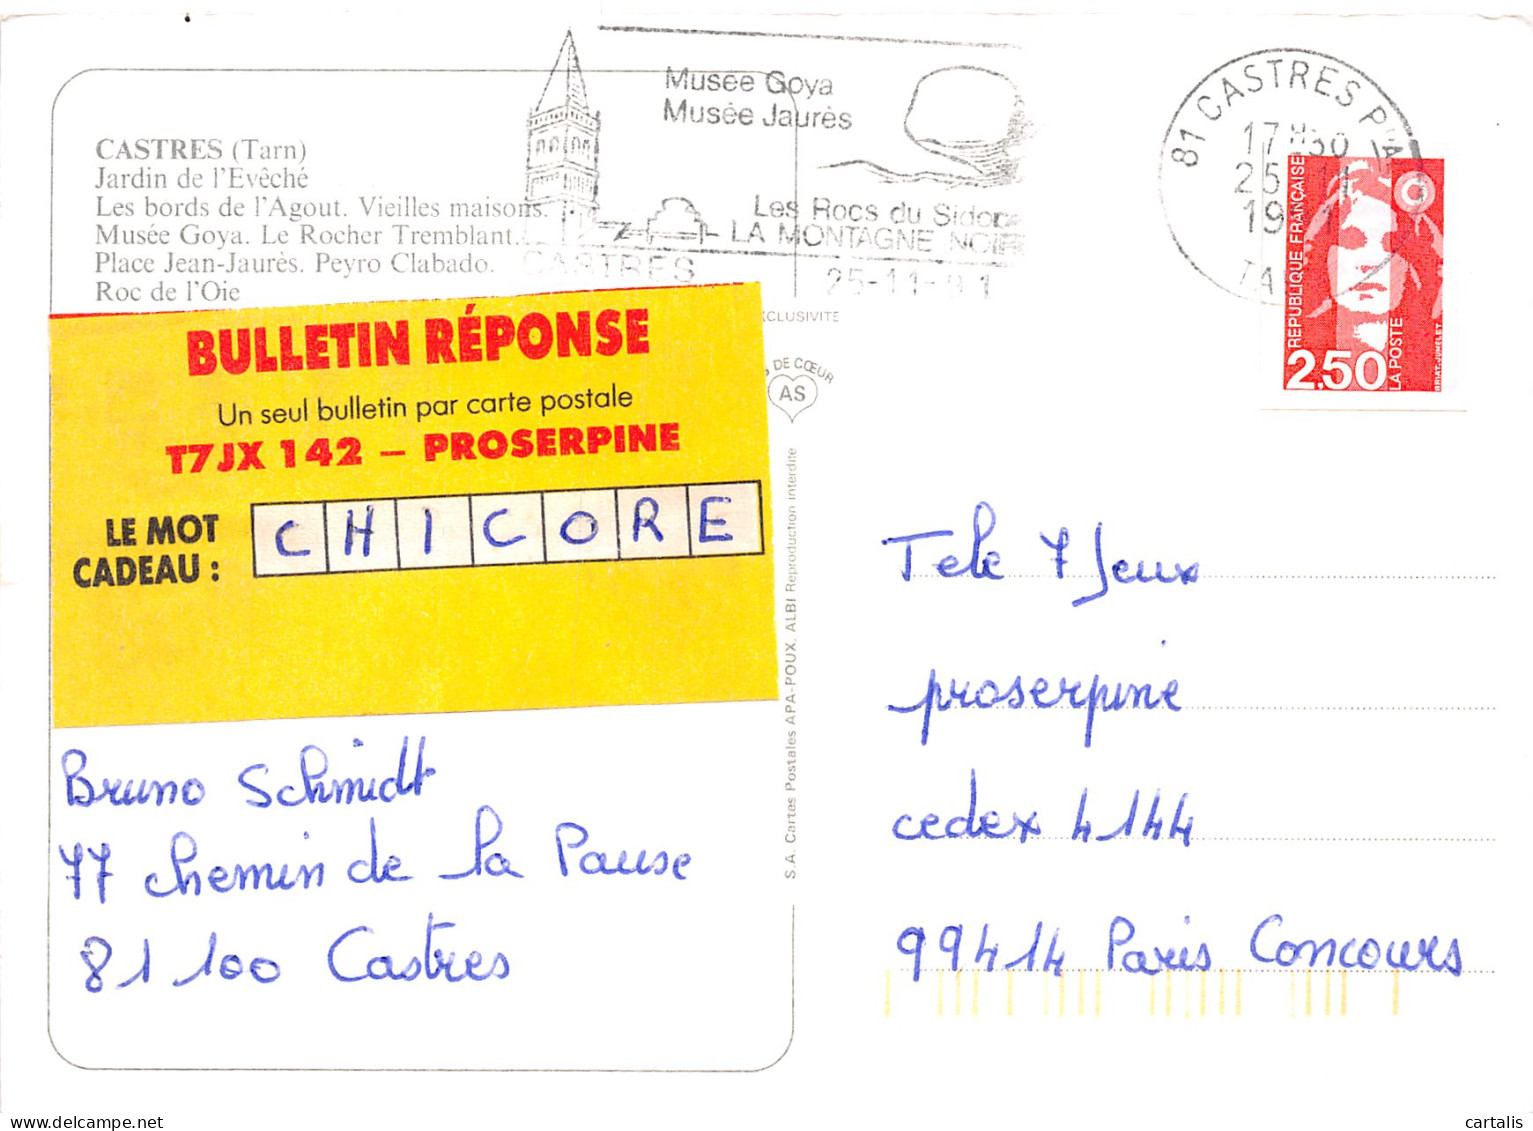 Musée Goya
Musée Jaurès
Les Rocs du Sidobre
LA MONTAGNE NOIRE
CASTRES
25-11-91
81 CASTRES PAL
17H30
25 11
19
TARN
REPUBLIQUE FRANÇAISE
2,50
LA POSTE
BRIAT. JUMELET
CASTRES (Tarn)
Jardin de l'Evêché
Les bords de l'Agout. Vieilles maisons.
Musée Goya. Le Rocher Tremblant.
Place Jean-Jaurès. Peyro Clabado.
Roc de l'Oie
XCLUSIVITE
DE CŒUR
AS
BULLETIN RÉPONSE
Un seul bulletin par carte postale
T7JX 142 – PROSERPINE
LE MOT
CADEAU :
CHICORE
S.A. Cartes Postales APA-POUX. ALBI Reproduction interdite
Bruno Schmidt
77 chemin de la Pause
81100 Castres
Tele 7 Jeux
proserpine
cedex 4144
99414 Paris Concours
cartalis